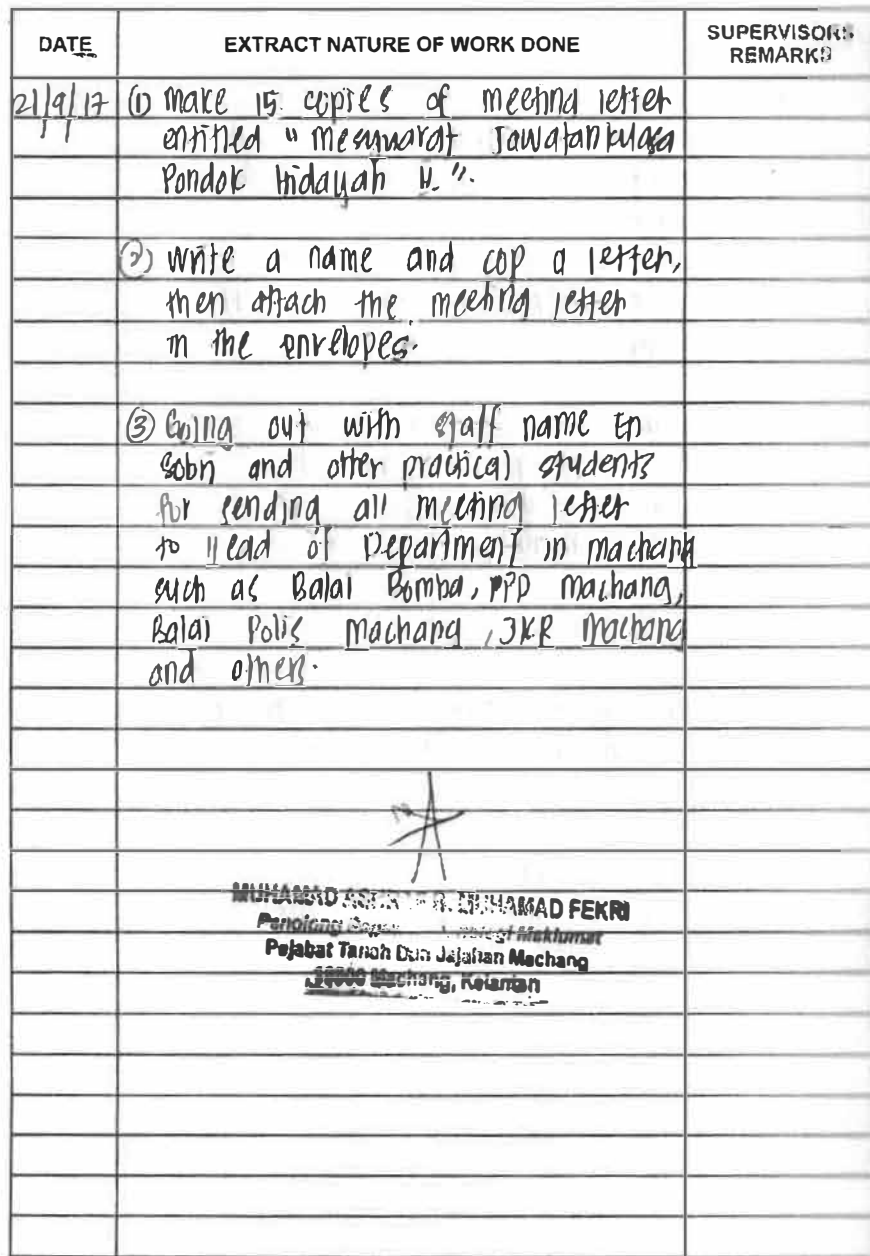 DATE
EXTRACT NATURE OF WORK DONE
SUPERVISORS
REMARKS
21/9/17
(1) Make 15 copies of meeting letter
entitled " Mesyuarat Jawatankuasa
Pondok Hidayah H. ".
(2) Write a name and cop a letter,
then attach the meeting letter
in the envelopes.
(3) Going out with staff name En
Sobri and other practical students
for sending all meeting letter
to Head of Department in Machang
such as Balai Bomba, PPD Machang,
Balai Polis Machang, JKR Machang
and others.
MUHAMAD MUHAMAD FEKRI
Penolong Maklumat
Pejabat Tanah Dan Jajahan Machang
Machang, Kelantan